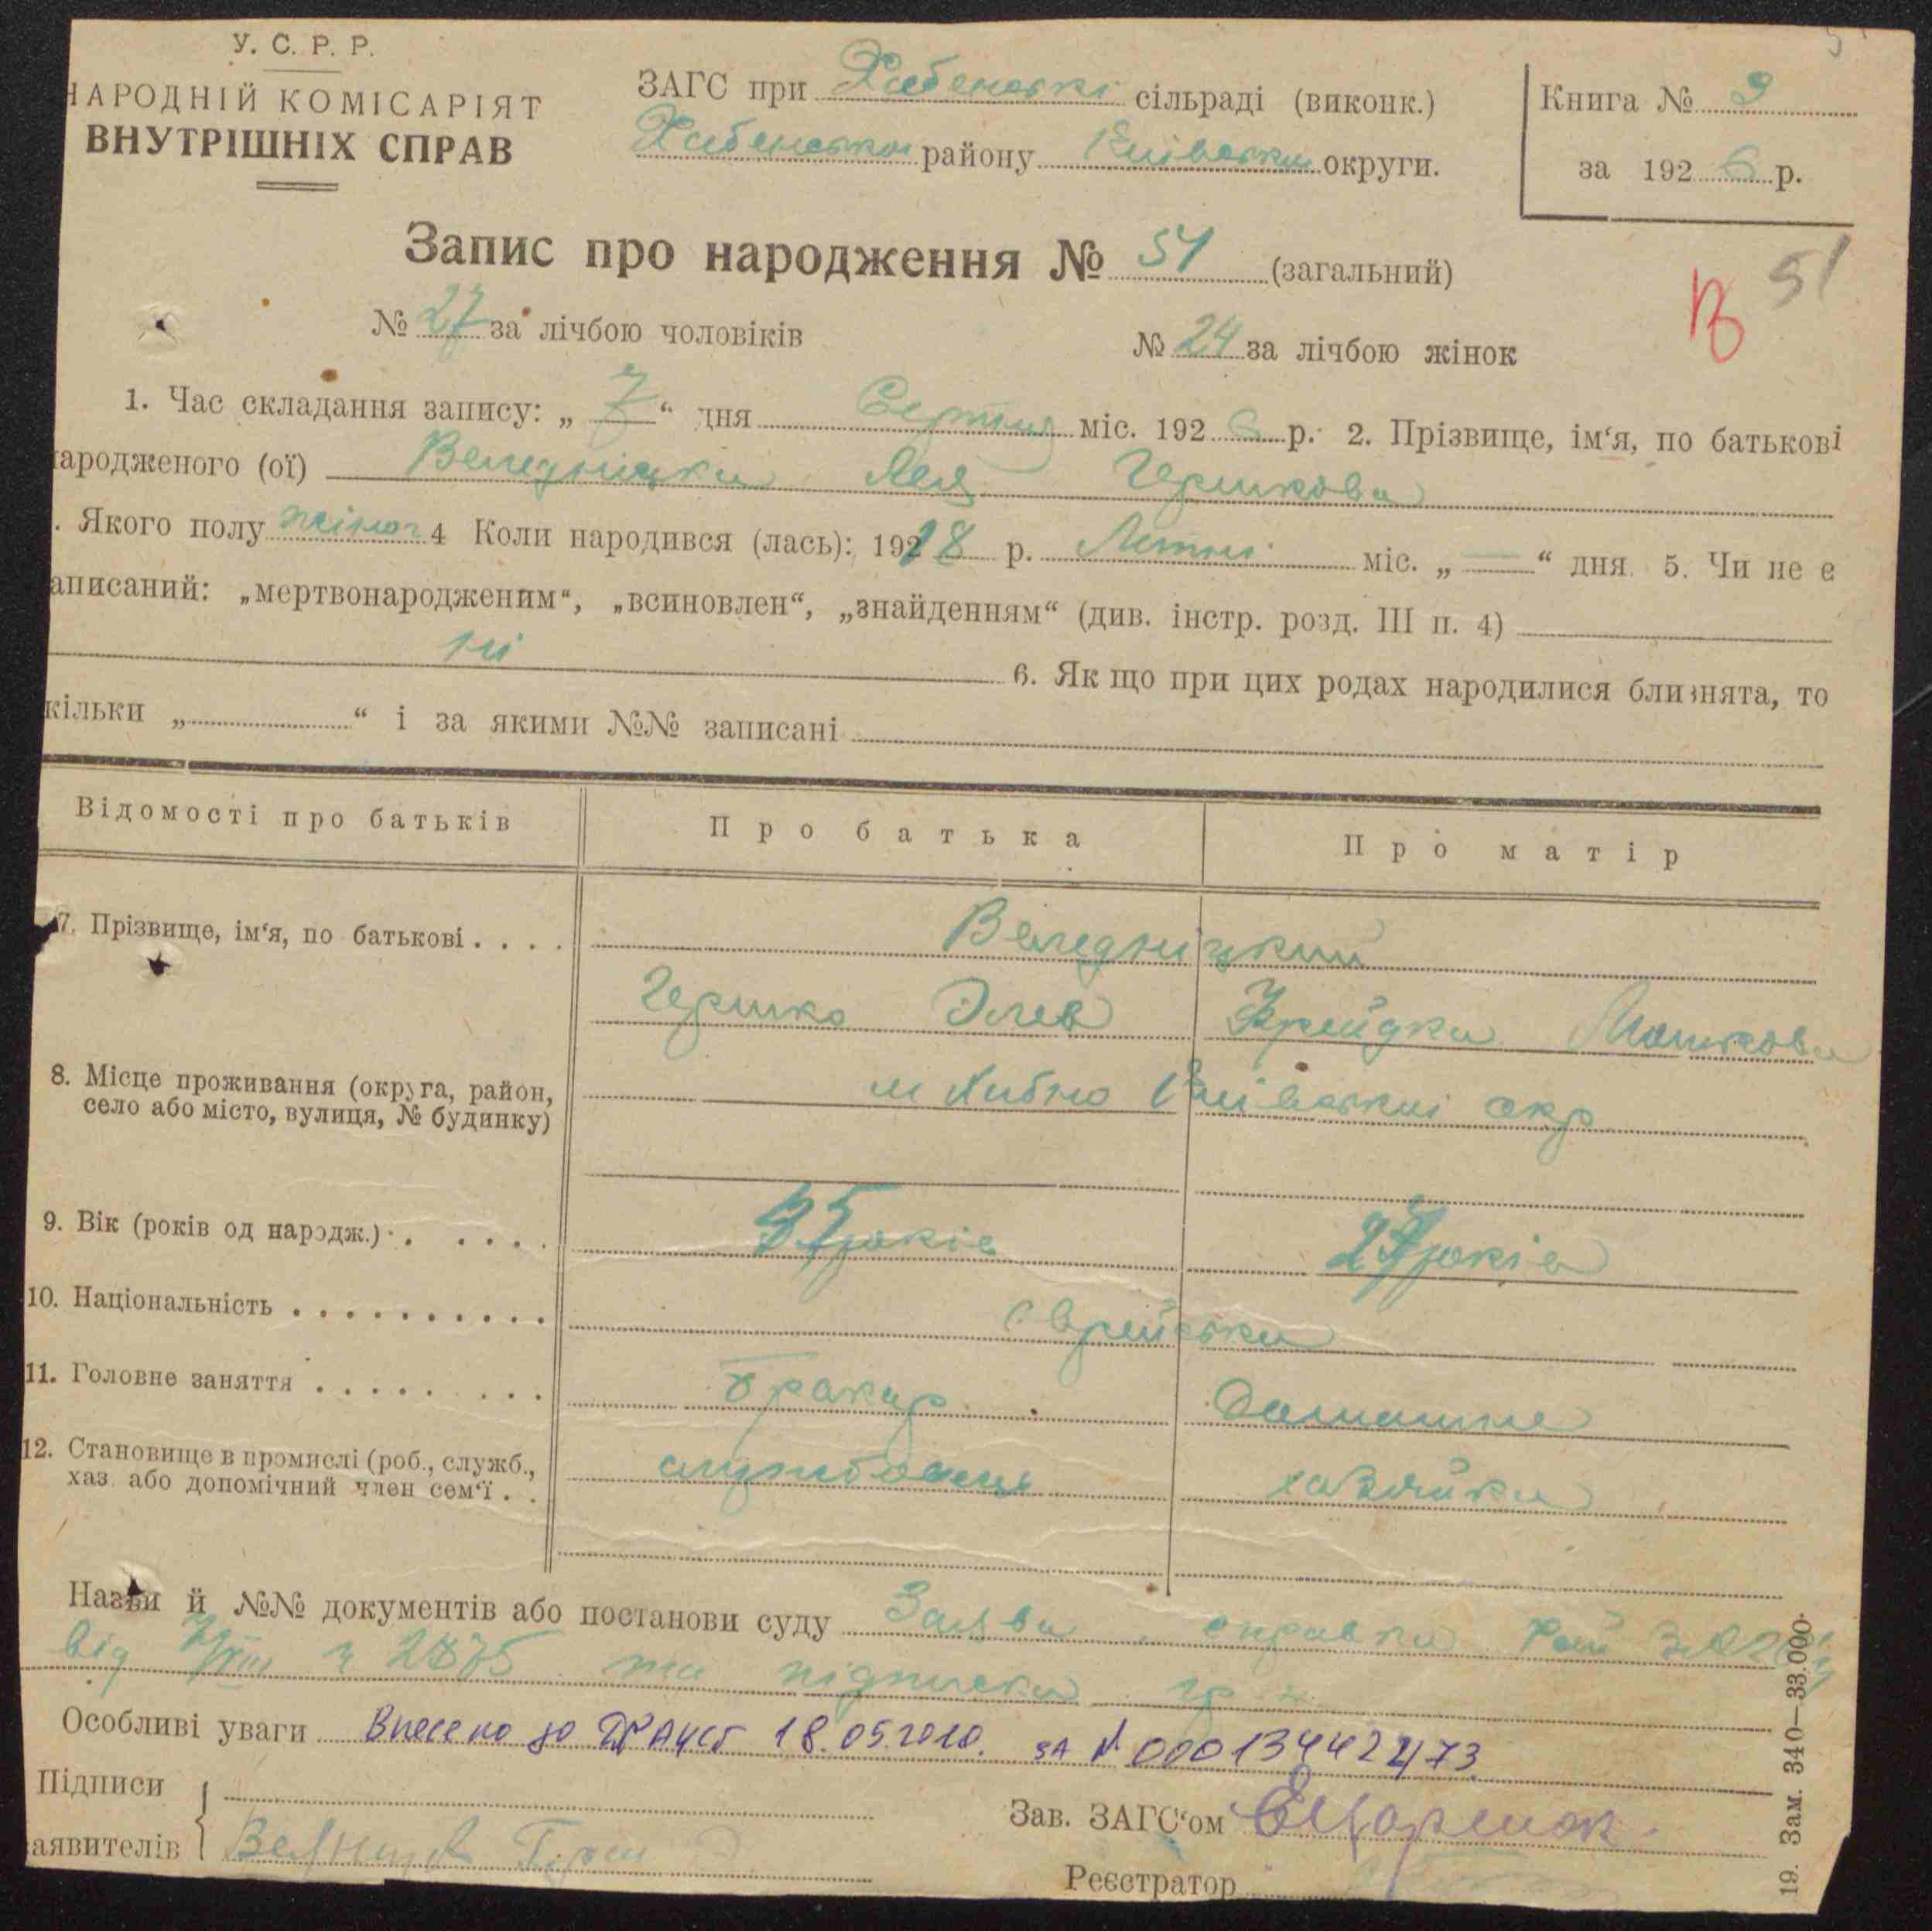 У. С. Р. Р.
НАРОДНІЙ КОМІСАРІЯТ
ВНУТРІШНІХ СПРАВ
ЗАГС при Хабенські сільраді (виконк.)
Хабенськом району Київськи округи.
Книга № 9
за 1926 р.
Запис про народження № 51 (загальний)
51
№ 27 за лічбою чоловіків
№ 24 за лічбою жінок
1. Час складання запису: „ 7 “ дня Серпня міс. 1926 р. 2. Прізвище, ім‘я, по батькові
народженого (ої) Веледніцка Лея Гершкова
. Якого полу жіноч 4 Коли народився (лась): 1918 р. Липні міс. „ — “ дня. 5. Чи не є
аписаний: „мертвонародженим“, „всиновлен“, „знайденням“ (див. інстр. розд. III п. 4)
ні
6. Як що при цих родах народилися близнята, то
кільки „ “ і за якими №№ записані
Відомості про батьків Про батька Про матір
7. Прізвище, ім‘я, по батькові . . . . Веледницкий
Гершко Элев Фрейдка Мошкова
8. Місце проживання (округа, район,
село або місто, вулиця, № будинку)
м Хабно Київські окр
9. Вік (років од народж.) 35 років 27 років
10. Національність . . . . . . . . . . Єврейська
11. Головне заняття . . . . . . . . Бракар Домашне
12. Становище в промислі (роб., служб.,
хаз. або допомічний член сем‘ї . .
службовець хазяйка
Назви й №№ документів або постанови суду Заява справка Рай ЗАГСу
від 7/VIII ч 2875 та підписка гр
Особливі уваги Внесено до ДРАЦСГ 18.05.2010. за № 00013442473
Підписи
заявителів
Зав. ЗАГС‘ом
Реєстратор
19. Зам. 340—33.000.